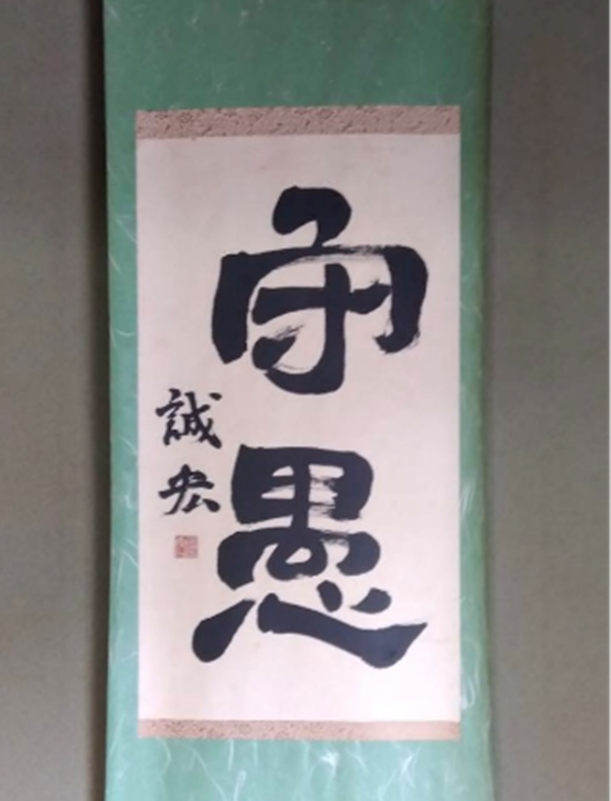 守愚
誠宏